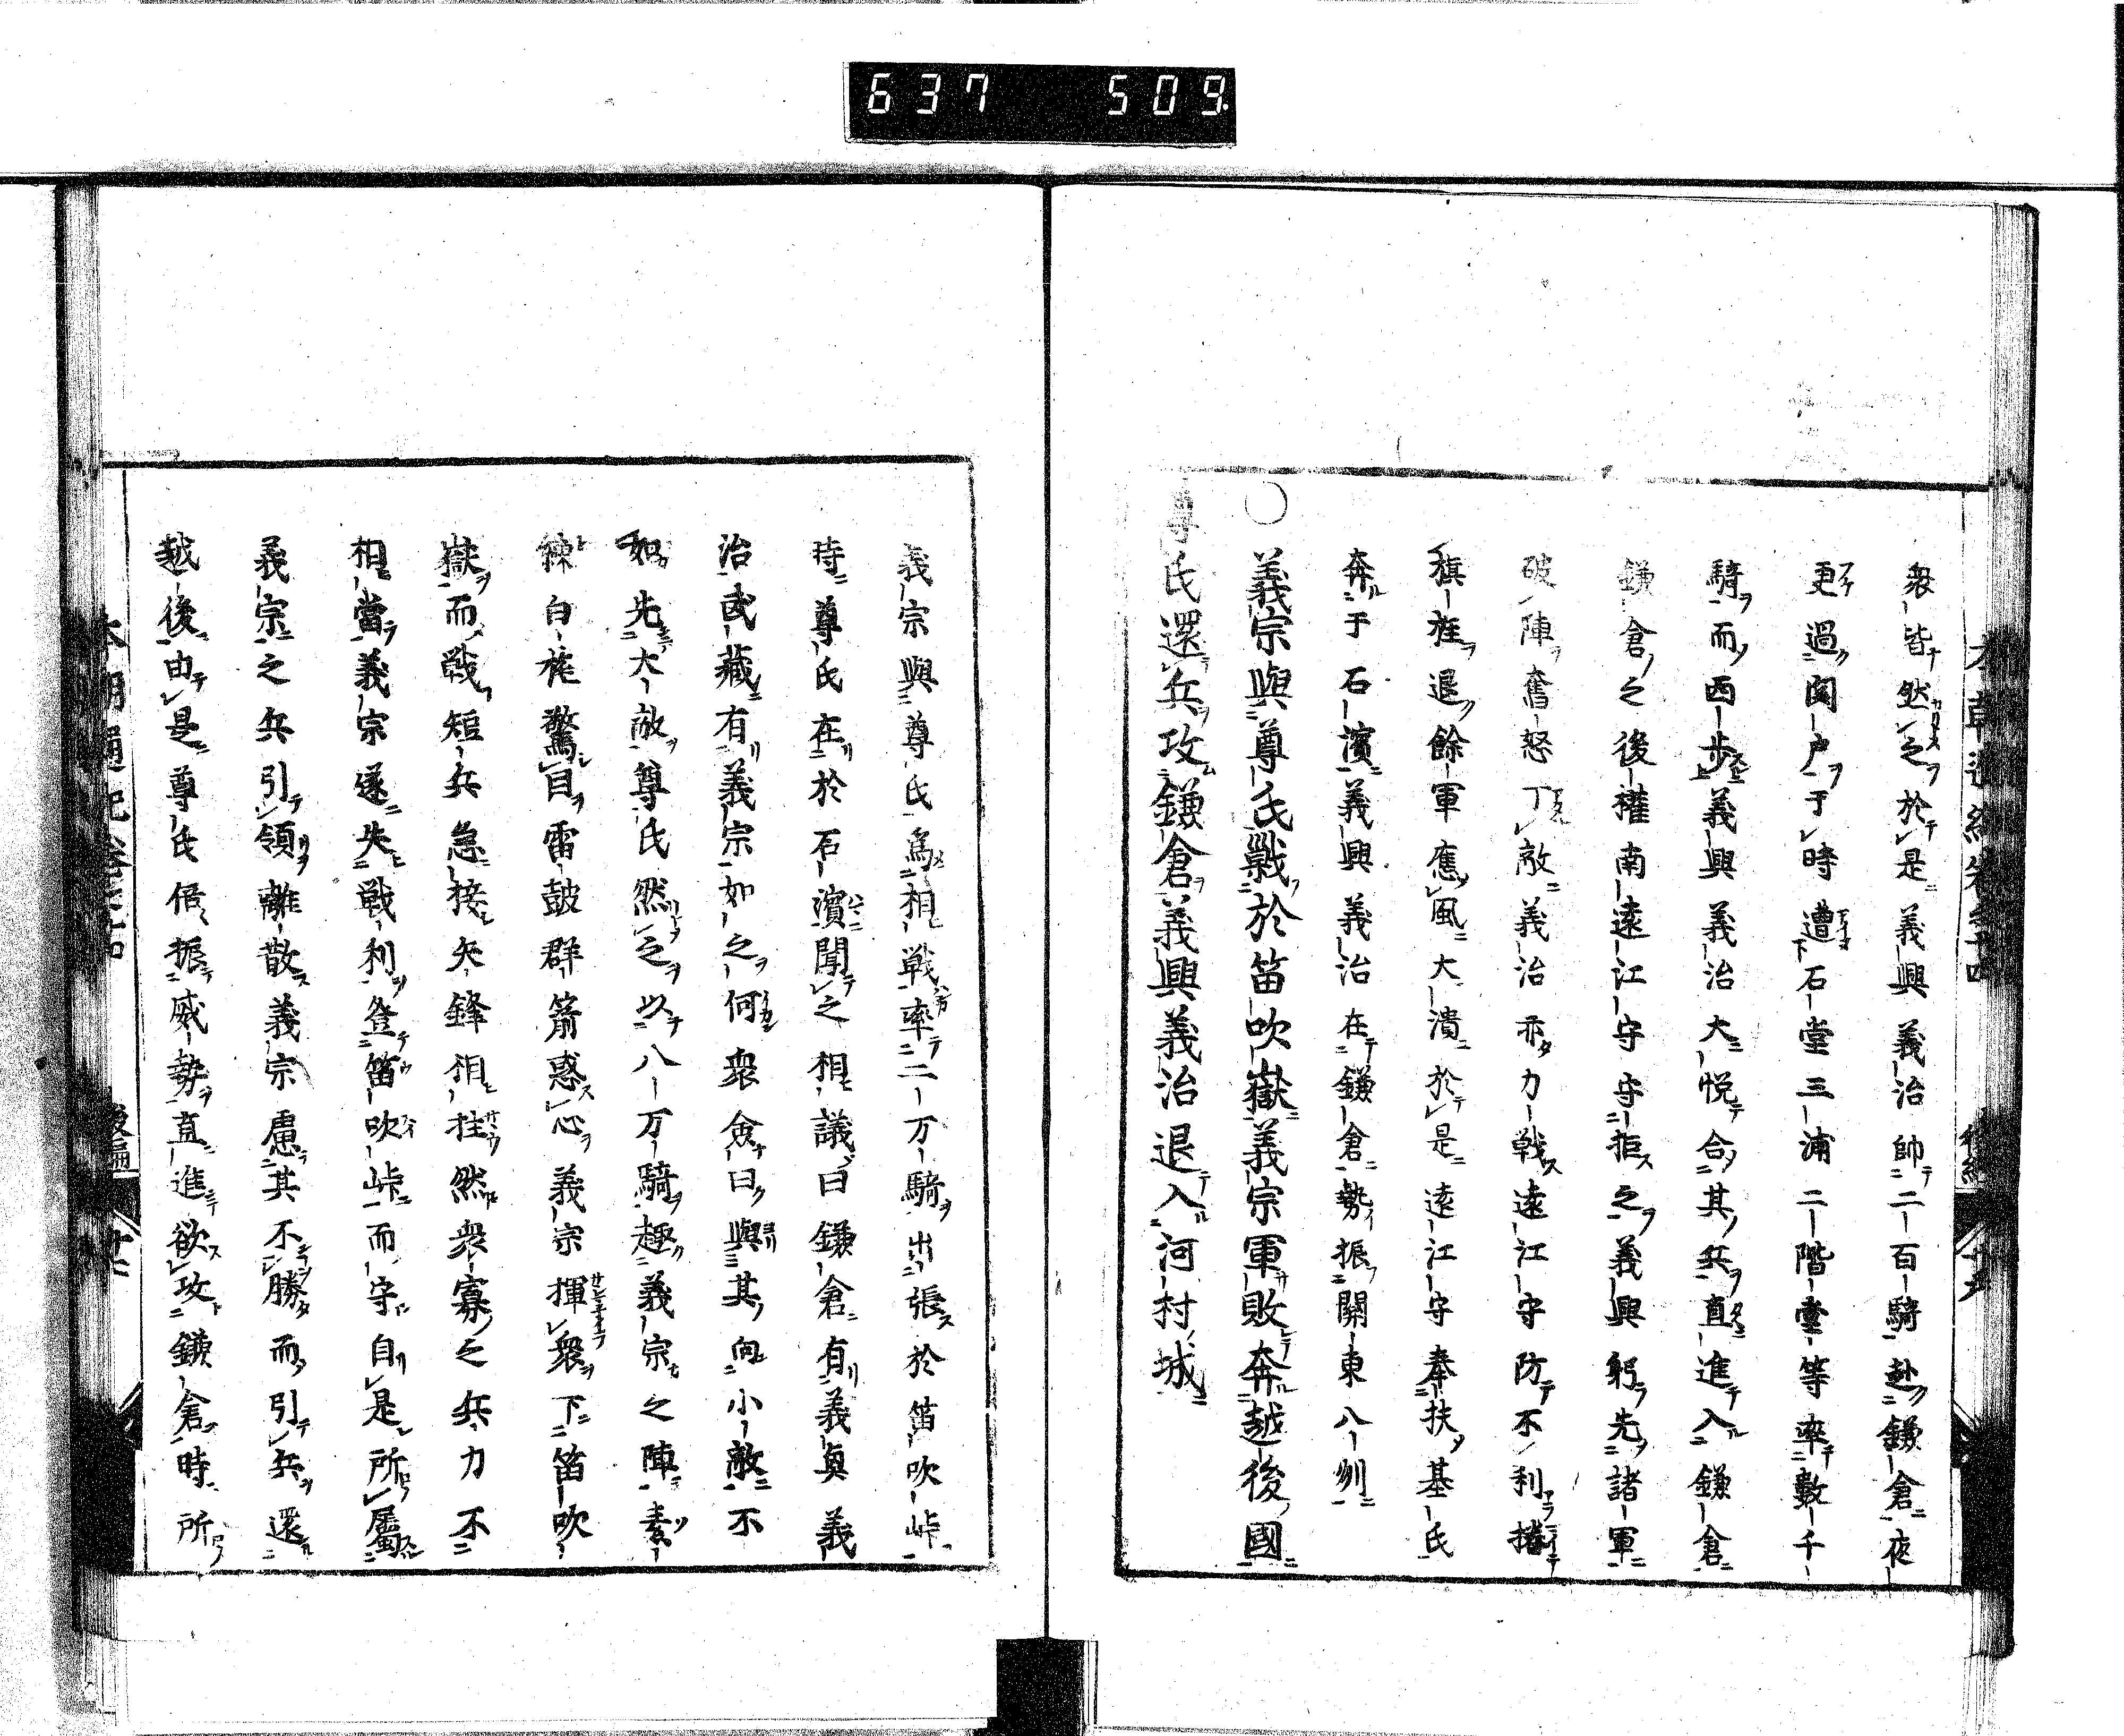 637 509
衆皆然之於是義興義治帥二百騎赴鎌倉夜
更過関戸于時遭石堂三浦二階堂等率數千
騎而西歩義興義治大悦合其兵直進入鎌倉
鎌倉之後權南遠江守守拒之義興躬先諸軍
破陣奮怒丁敵義治亦力戦遠江守防不利捲
旗旌退餘軍應風大潰於是遠江守奉扶基氏
奔于石濱義興義治在鎌倉勢振關東八州
○義宗與尊氏戰於笛吹嶽義宗軍敗奔越後國
尊氏還兵攻鎌倉義興義治退入河村城
義宗與尊氏為相戦率二万騎出張於笛吹峠
時尊氏在於石濱聞之相議曰鎌倉有義興義
治武藏有義宗如之何衆僉曰與其向小敵不
如先大敵尊氏然之以八万騎趣義宗之陣素
練白旄驚目雷鼓群箭惑心義宗揮衆下笛吹
嶽而戦短兵急接矢鋒相拄然衆寡之兵力不
相當義宗遂失戦利登笛吹峠而守自是所屬
義宗之兵引領離散義宗慮其不勝而引兵還
越後由是尊氏倍振威勢直進欲攻鎌倉時所